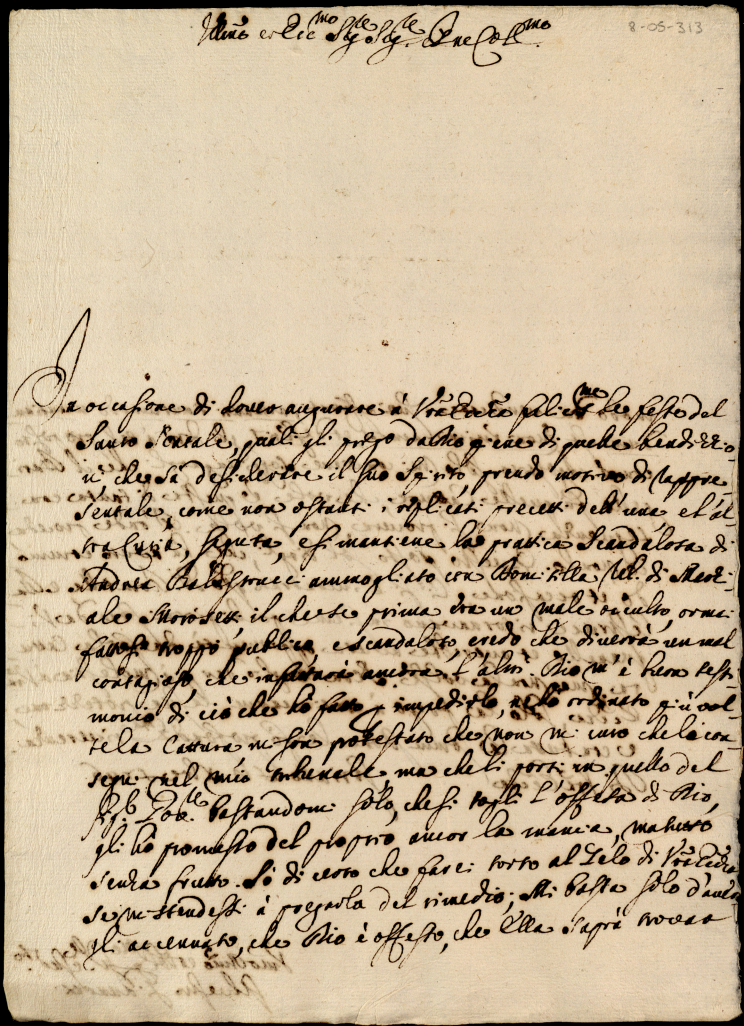 8-05-313
Illmo et Ecc.mo Sig.re Sig.re P.ne Coll.mo
In occasione di dover augurare à Vra Eccza felicis.me le feste del
Santo Natale, quali gli prego da Dio piene di quelle benditio-
ni, che sà desiderare il suo Spirito, prendo motivo di rappre-
sentale, come non ostanti i replicati precetti dell'una e l'al-
tra Curia, seguita, e si mantiene la prattica Scandalosa di
Andrea Balestracci ammogliato con Domitilla di
ale Moroseti, il che se prima era un male occulto, ormai
fattosi troppo publico, e scandaloso, credo che diverrà un mal
contagioso, che infetterà ancora l'altri. Dio m'è buon testi-
monio di ciò che hò fatto p impedirlo, n'hò ordinato più vol-
te la Cattura mi son protestato che non mi curo che la con-
segui nel mio tribunale ma che li porti in quello del
Sig.r bastandomi solo, che si togli l'offesa di Dio,
gli hò promesso del proprio ancor la mancia, ma tutto
senza frutto. Sò di certo che farei torto al Zelo di Vra Eccza
se mi stendessi à pregarla del rimedio; Mi basta solo d'aver
gli accennato, che Dio è offeso, che Ella saprà trovar